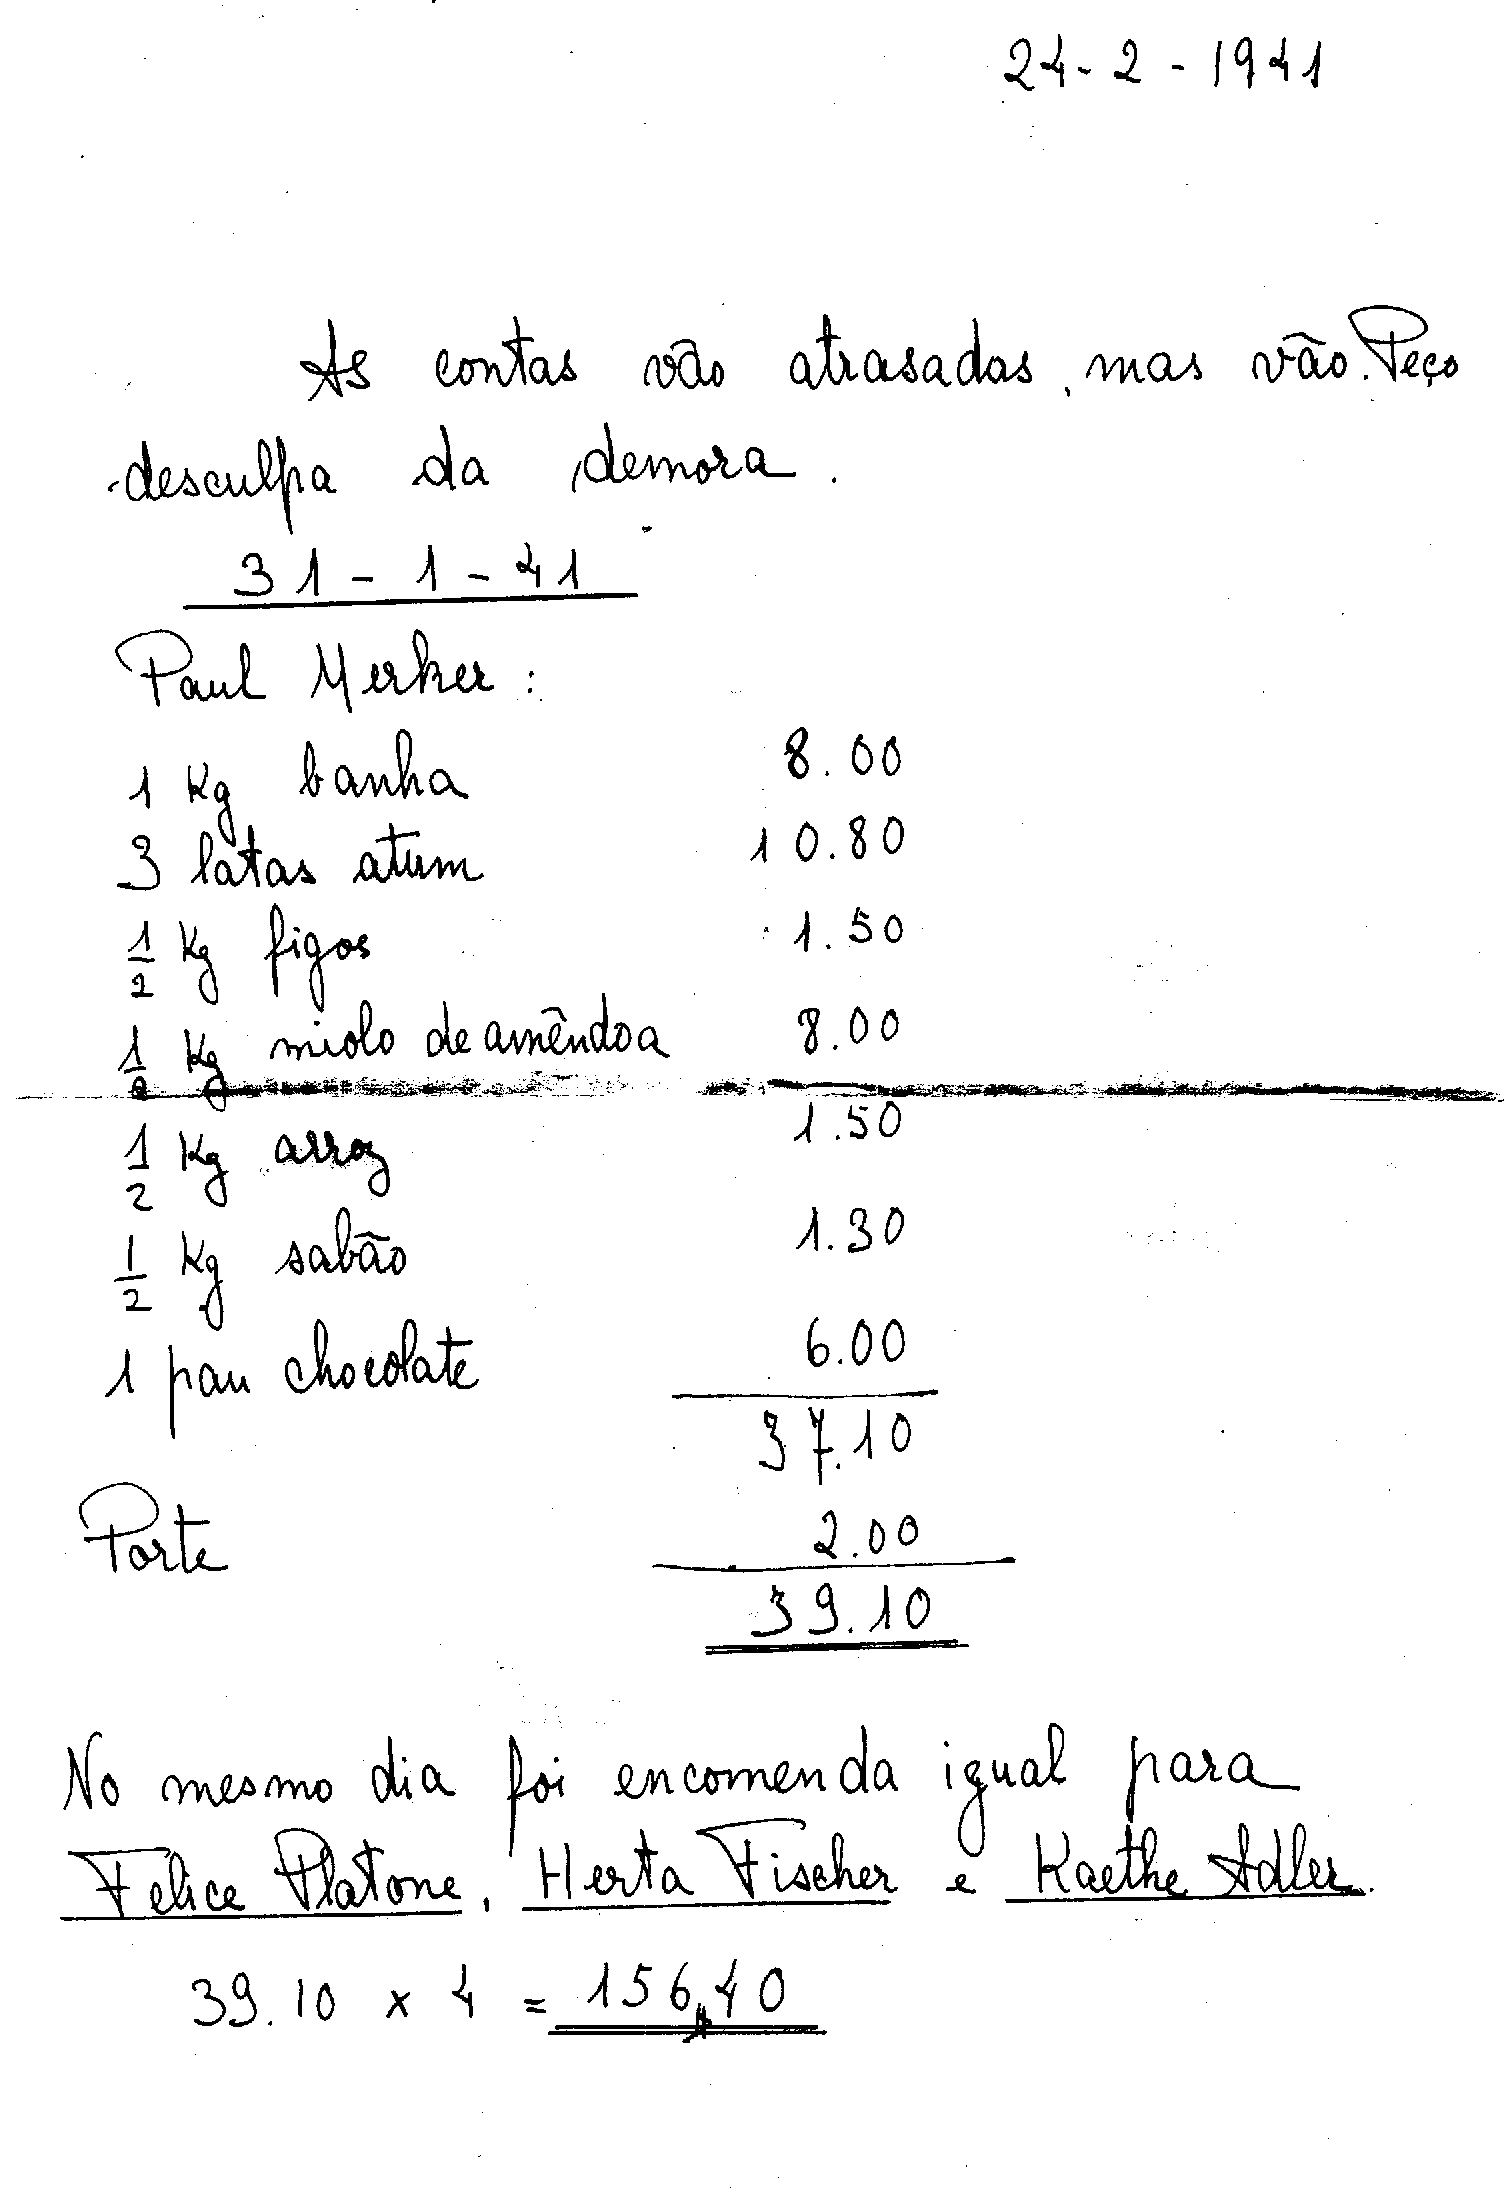 24-2-1941
As contas vão atrasadas, mas vão. Peço
desculpa da demora.
31-1-41
Paul Merker:
1 Kg banha 8.00
3 latas atum 10.80
1/2 Kg figos 1.50
1/2 Kg miolo de amêndoa 8.00
1/2 Kg arroz 1.50
1/2 Kg sabão 1.30
1 pau chocolate 6.00
37.10
Porte 2.00
39.10
No mesmo dia foi encomenda igual para
Felice Platone, Herta Fischer e Kaethe Adler.
39.10 x 4 = 156,40